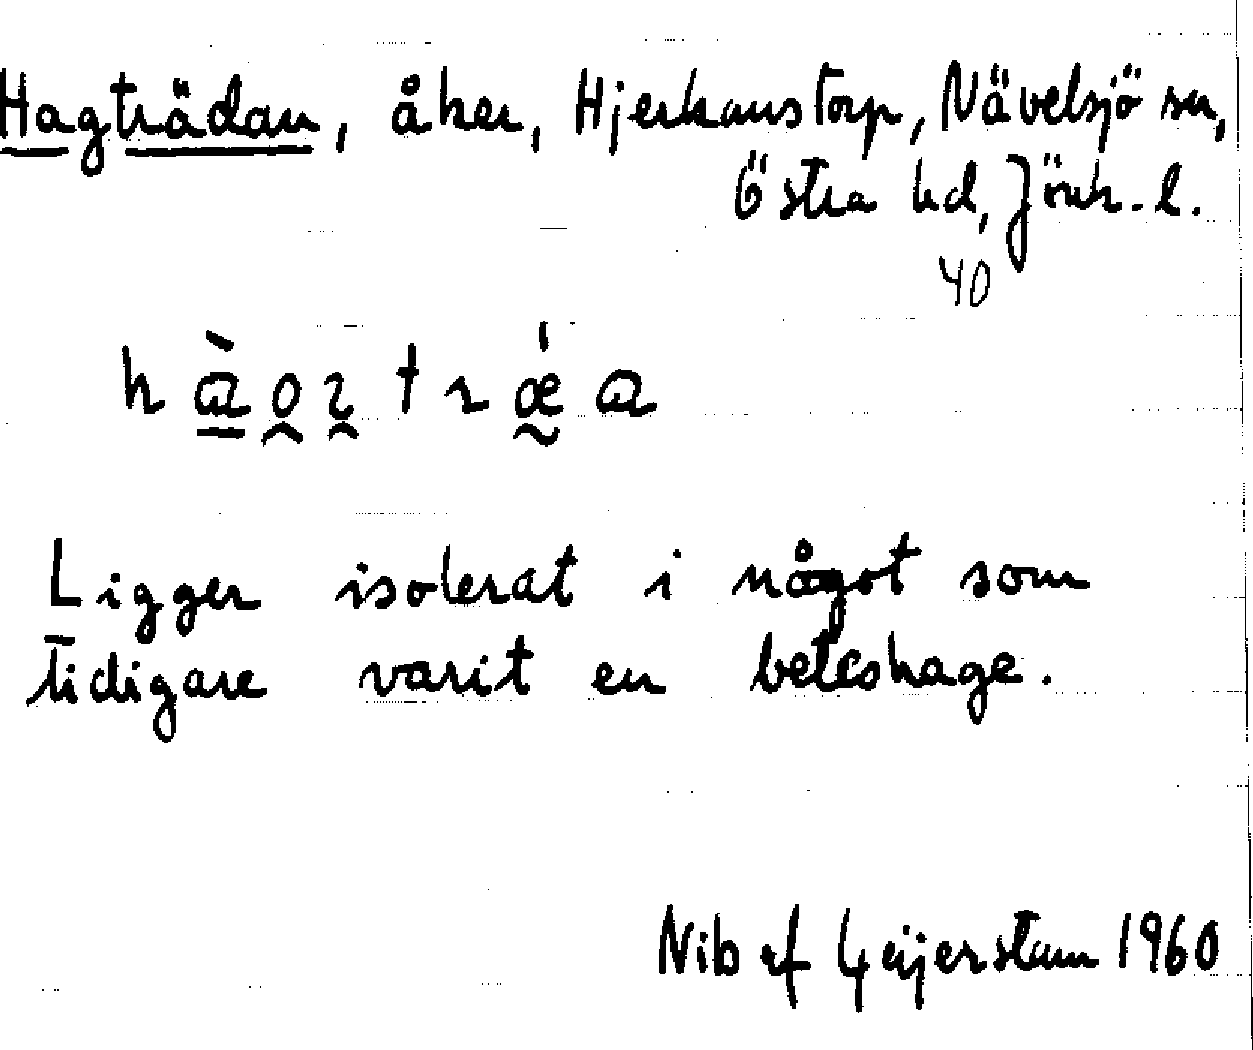 Hagträdan, åker, Hjerkanstorp, Nävelsjö sn,
Östra hd, Jönk. l.
40
Ligger isolerat i något som
tidigare varit en beteshage.
Nib af Geijerstam 1960